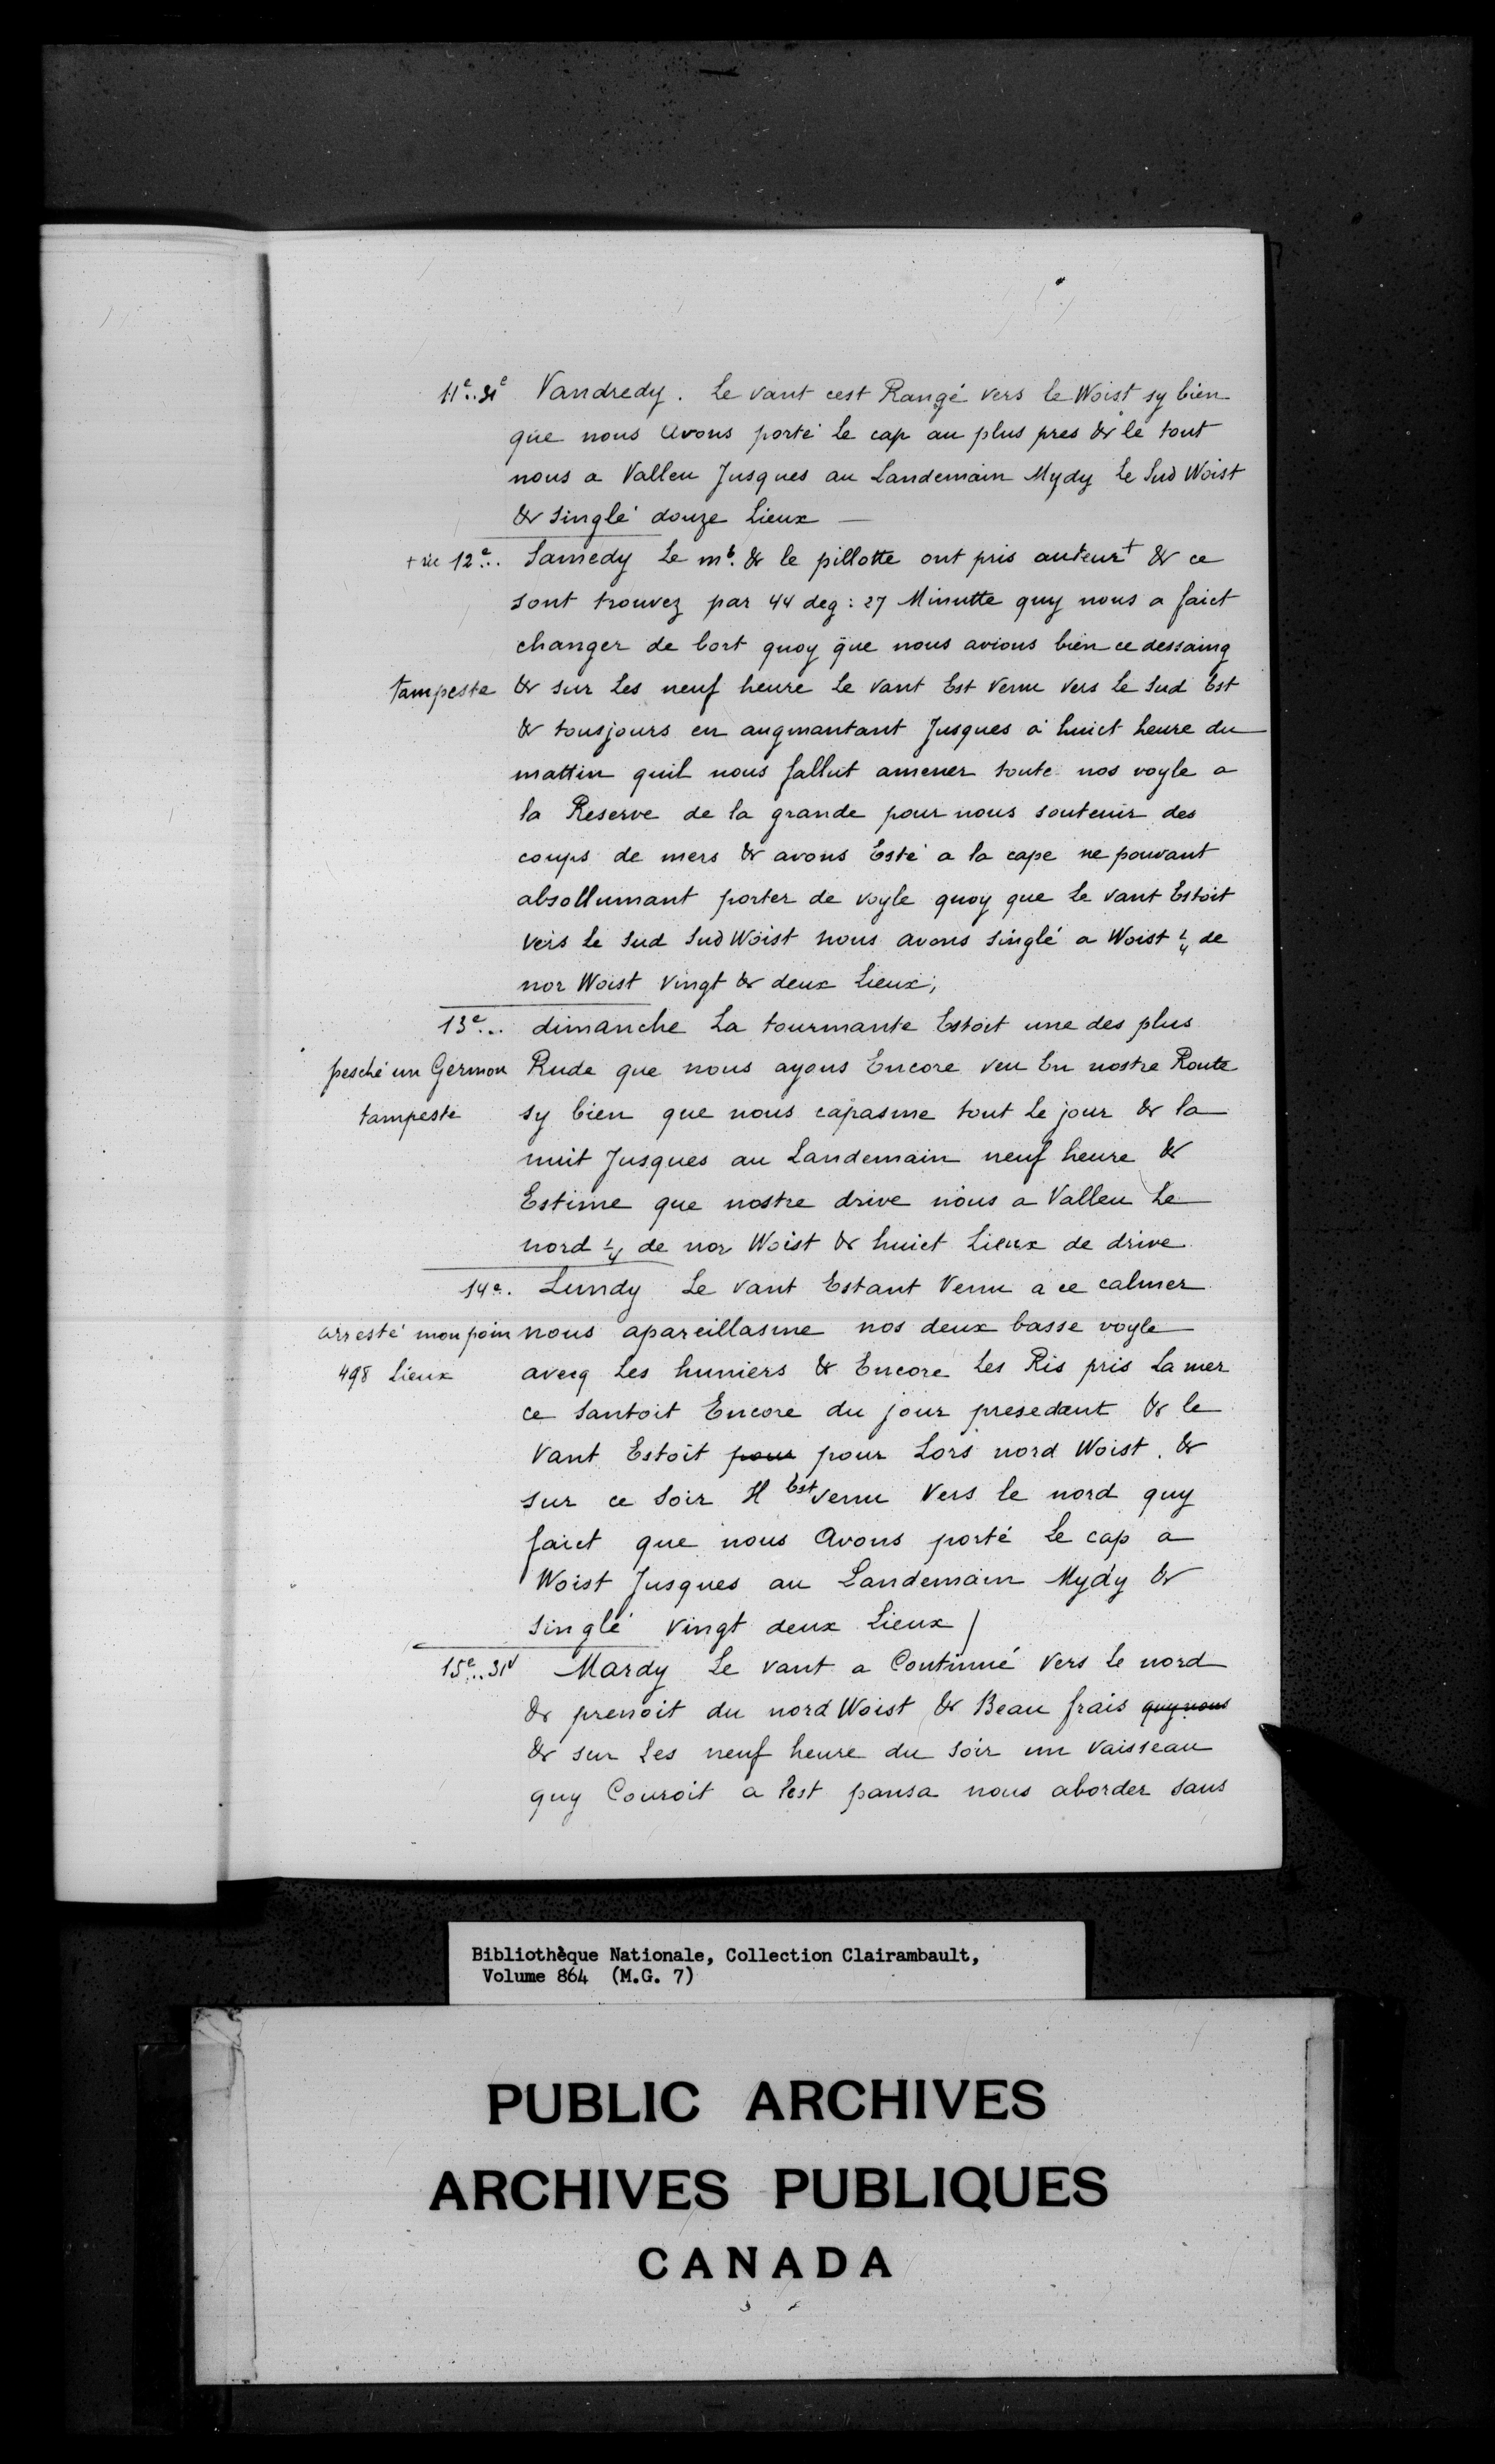 11e.. 31e Vandredy. Le vant cest Rangé vers le Woist sy bien
que nous Avons porté Le cap au plus pres & le tout
nous a Valleu Jusques au Landemain Mydy Le Sud Woist
& singlé douze Lieux —
+ sic 12e.. Samedy Le me. & le pillotte ont pris auteur+ & ce
sont trouvez par 44 deg: 27 Minutte quy nous a faict
changer de bort quoy que nous avions bien ce dessaing
tampeste & sur Les neuf heure Le vant Est venu vers Le Sud Est
& tousjours en augmantant Jusques a huict heure du
mattin quil nous fallut amener toute nos voyle a
la Reserve de la grande pour nous soutenir des
coups de mers & avons Esté a la cape ne pouvant
absollumant porter de voyle quoy que Le vant Estoit
vers Le Sud Sud Woist nous avons singlé a Woist 1/4 de
nor Woist vingt & deux Lieux;
13e... dimanche La tourmante Estoit une des plus
pesché un Germon Rude que nous ayons Encore veu En nostre Route
tampeste sy bien que nous capasme tout Le jour & la
nuit Jusques au Landemain neuf heure &
Estime que nostre drive nous a Valleu Le
nord 1/4 de nor Woist & huict Lieux de drive
14e. Lundy Le vant Estant Venu a ce calmer
arresté mon poin nous apareillasme nos deux basse voyle
498 Lieux avecq Les huniers & Encore Les Ris pris La mer
ce santoit Encore du jour presedant & le
Vant Estoit pour pour Lors nord Woist. &
sur ce soir Il Est venu Vers le nord quy
faict que nous Avons porté Le cap a
Woist Jusques au Landemain Mydy &
singlé vingt deux Lieux /
15e.. 31 Mardy Le vant a Continué Vers Le nord
& prenoit du nord Woist & Beau frais quy nous
& sur Les neuf heure du soir un vaisseau
quy Couroit a lest pansa nous aborder sans
Bibliothèque Nationale, Collection Clairambault,
Volume 864 (M.G. 7)
PUBLIC ARCHIVES
ARCHIVES PUBLIQUES
CANADA